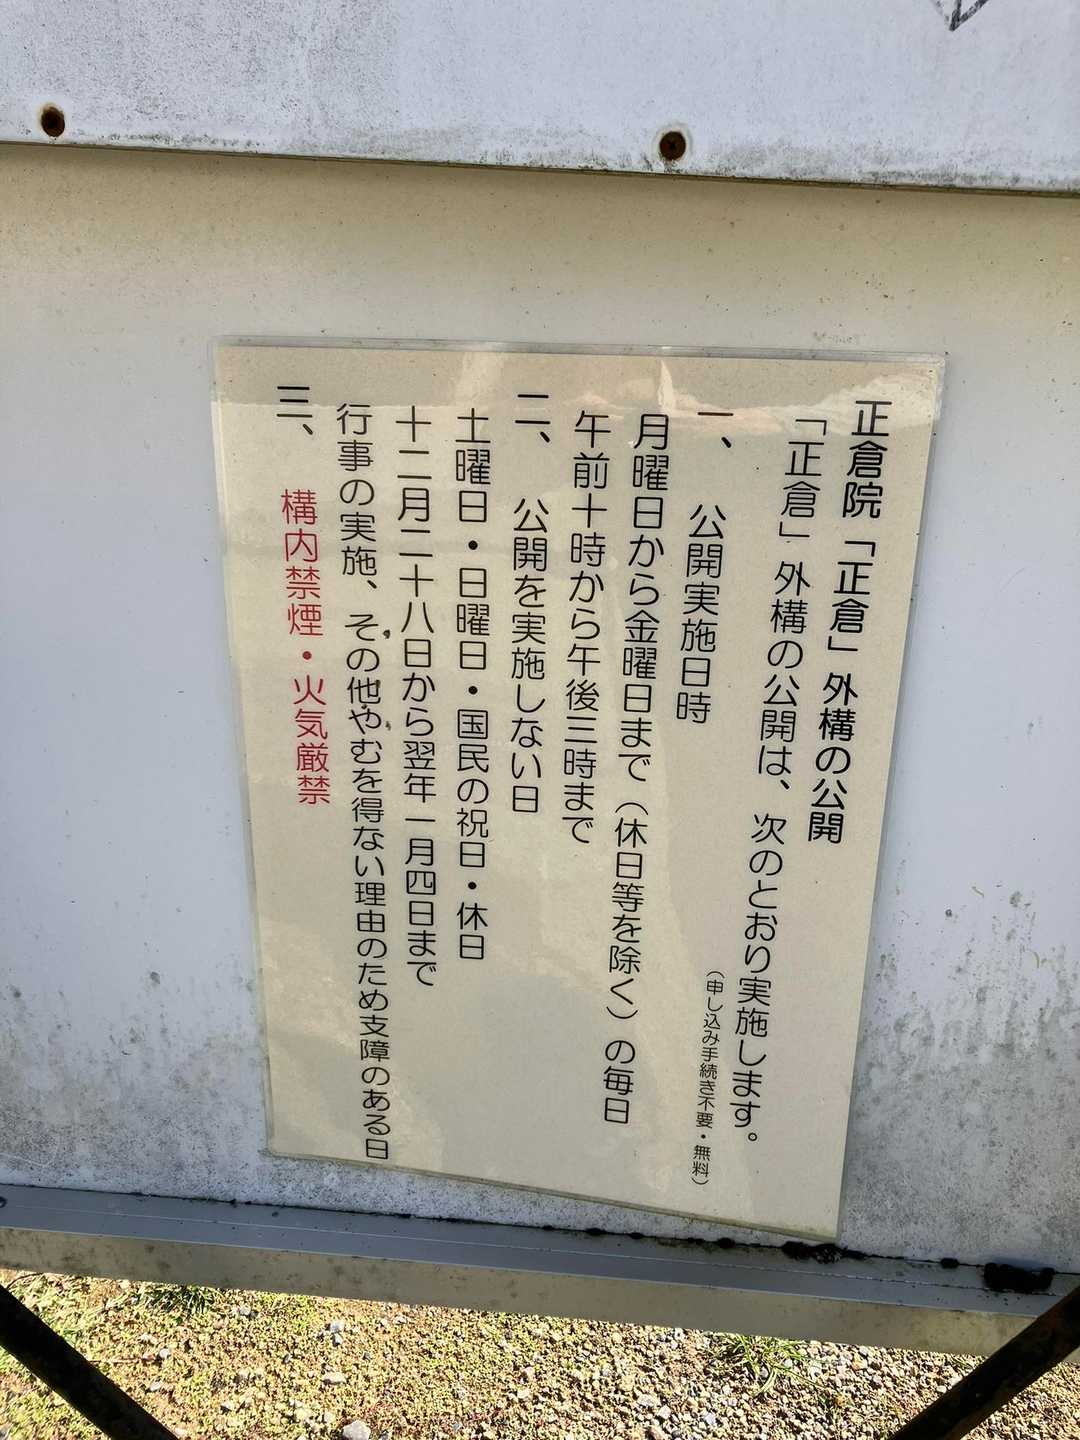 正倉院「正倉」外構の公開
「正倉」外構の公開は、次のとおり実施します。
（申し込み手続き不要・無料）
一、 公開実施日時
月曜日から金曜日まで（休日等を除く）の毎日
午前十時から午後三時まで
二、 公開を実施しない日
土曜日・日曜日・国民の祝日・休日
十二月二十八日から翌年一月四日まで
行事の実施、その他やむを得ない理由のため支障のある日
三、 構内禁煙・火気厳禁